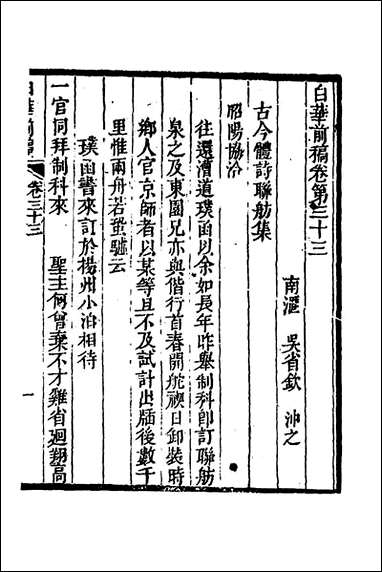 白華前稿卷第三十三
南滙　吳省欽　沖之
古今體詩聯舫集
昭陽協洽
往還漕道璞函以余如長年昨舉制科卽訂聯舫
泉之及東園兄亦與偕行首春開舵禊日卸裝時
鄉人官京師者以某等且不及試計出牐後數千
里惟兩舟若蛩驉云
璞函書來訂於揚州小泊相待
一官同拜制科來　聖主何曾棄不才雞省迴翔高
白華前稿　卷三十三
一